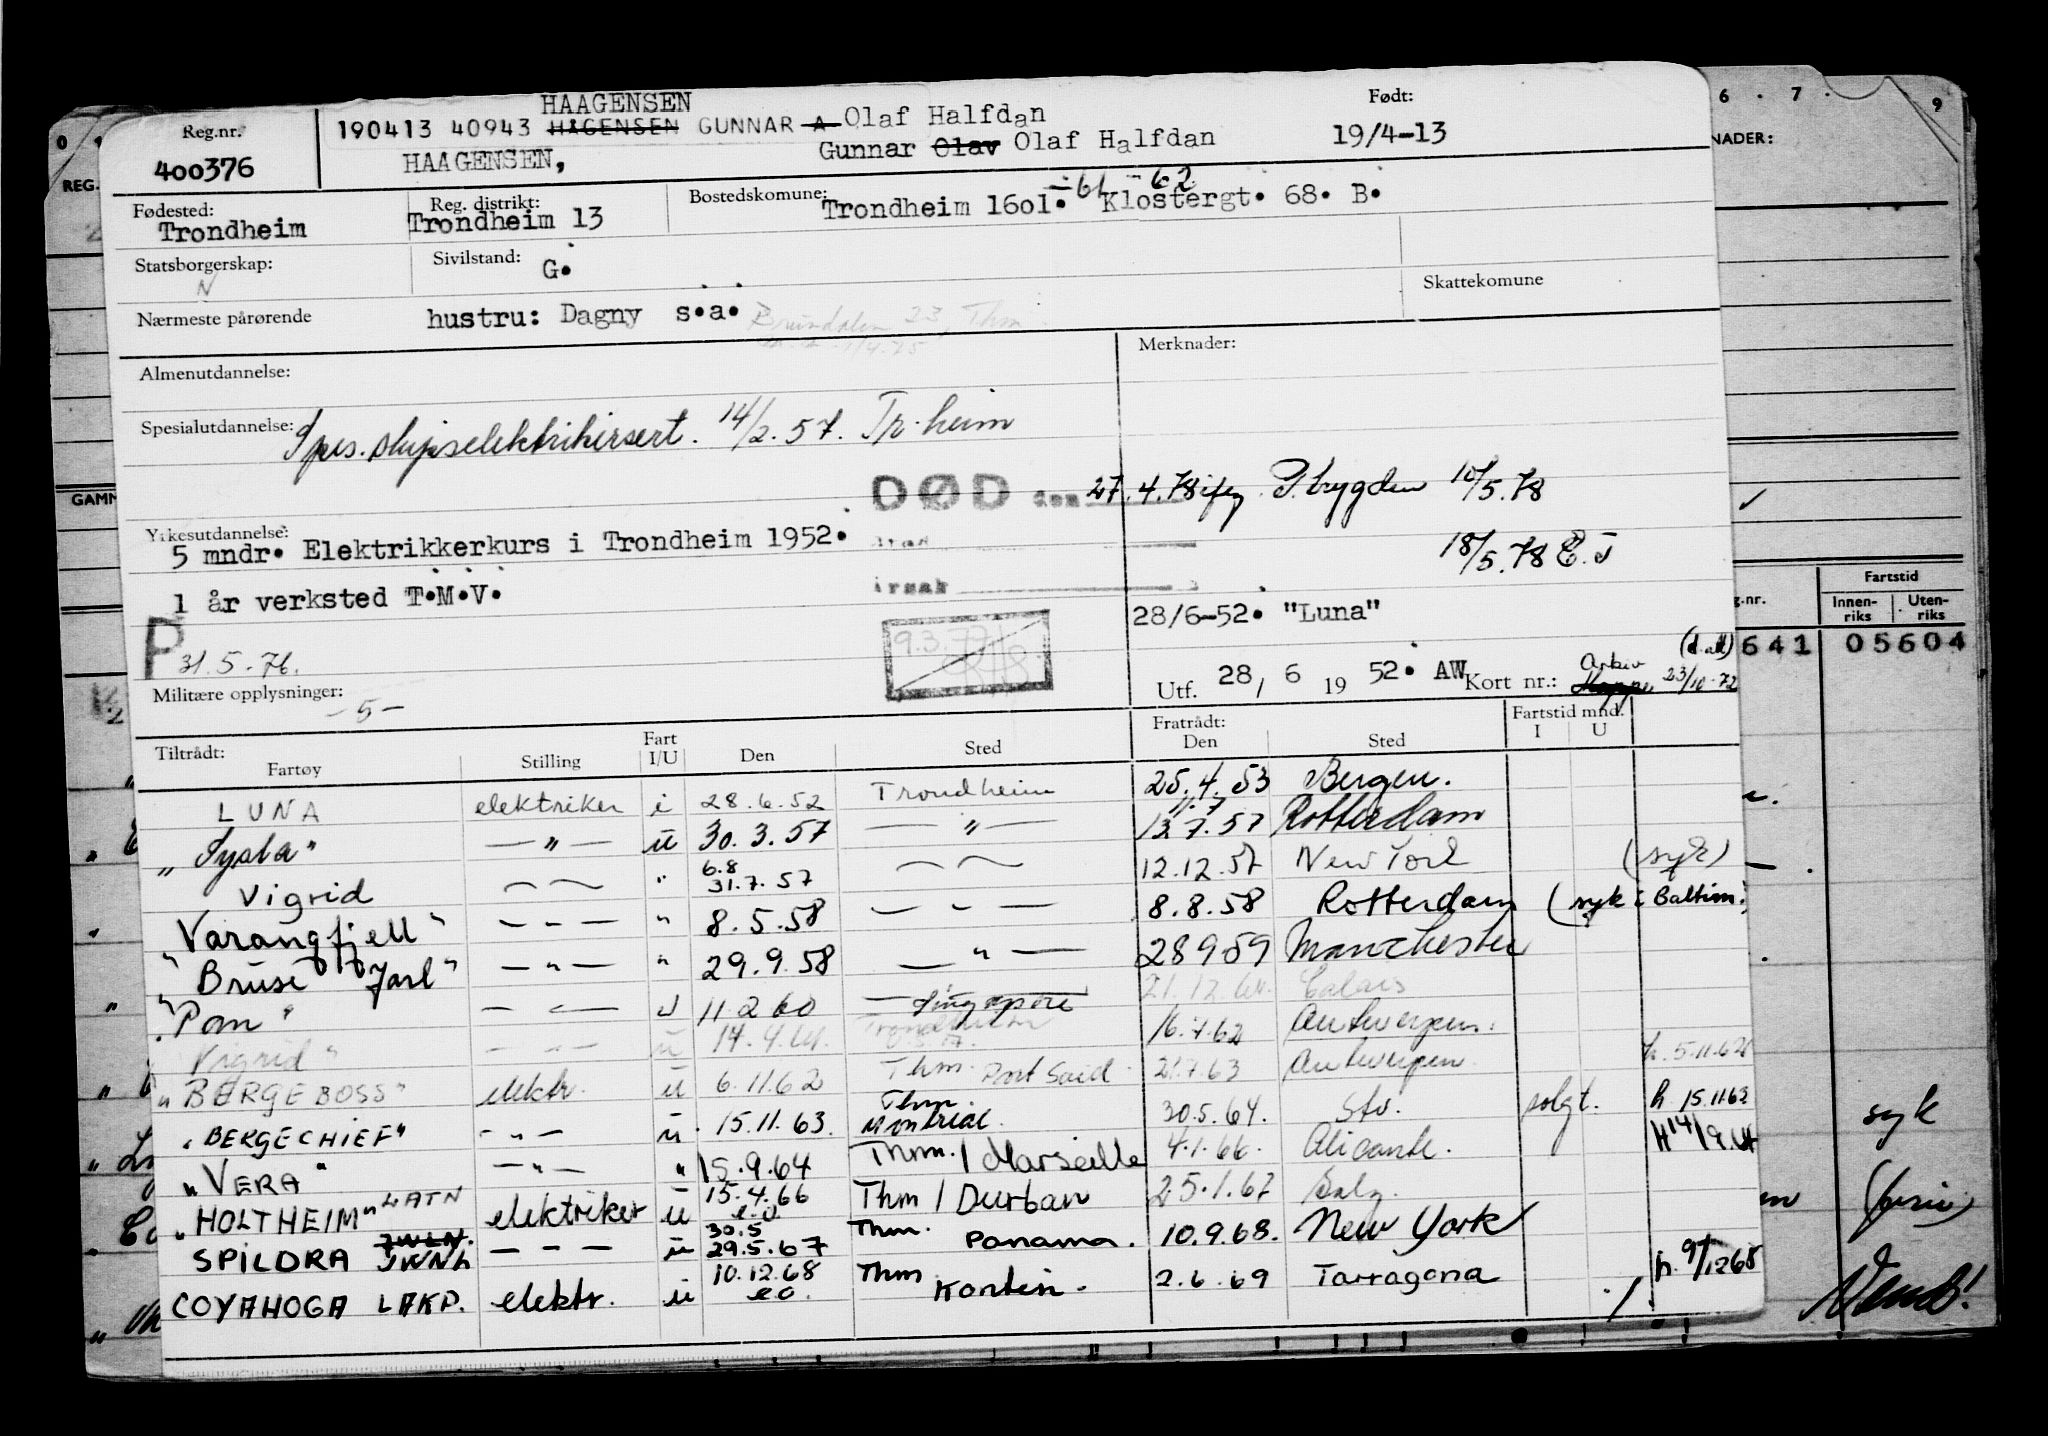 HAAGENSEN
Reg.nr. 190413 40943 HAGENSEN GUNNAR A Olaf Halfdan Født:
400376 HAAGENSEN, Gunnar Olav Olaf Halfdan 19/4-13
Fødested: Reg. distrikt: Bostedskomune: -61 -62
Trondheim Trondheim 13 Trondheim 16o1. Klostergt. 68. B.
Statsborgerskap: Sivilstand: G.
N
Skattekomune
Nærmeste pårørende hustru: Dagny s.a. Brundalen 23, Thm
1/4.75
Almenutdannelse: Merknader:
Spesialutdannelse: Spes. skipselektrikersert. 14/2.57. Tr.heim
DØD den 27.4.78 T.trygden 10/5.78
Yrkesutdannelse:
5 mndr. Elektrikkerkurs i Trondheim 1952.
18/5.78 E.J
1 år verksted T.M.V. årsak
28/6-52. "Luna"
P 31.5.76. 9.3.77
Utf. 28, 6 19 52. AW Kort nr.: Arkiv Mappe 23/10-72
Militære opplysninger: -5-
Tiltrådt: Fratrådt: Fartstid mnd.
Fartøy Stilling Fart I/U Den Sted Den Sted I U
LUNA elektriker i 28.6.52 Trondheim 25.4.53 Bergen.
11.7
"Sysla" — " — u 30.3.57 — " — 12.7.57 Rotterdam
6.8
Vigrid " 31.7.57 12.12.57 New York (syk)
"Varangfjell" — " — " 8.5.58 — " — 8.8.58 Rotterdam (syk i Baltim.)
"Bruse Jarl" — " — " 29.9.58 — " — 28 9 59 Manchester
"Pan" — " — U 11.2.60 Singapore 21.12.61. Calais
"Vigrid" — " — u 14.4.61. Trondheim 16.7.62 Antwerpen.
"BERGEBOSS" elektr. u 6.11.62 Thm. Port Said 21.7.63 Antwerpen. h. 5.11.62
"BERGECHIEF" — " — u 15.11.63. Thm. Montreal 30.5.64. Stv. solgt. h 15.11.63
"VERA" — " — " 15.9.64 Thm. / Marseille 4.1.66. Alicante. H 14/9.64
"HOLTHEIM" LATN elektriker u 15.4.66 e.o Thm / Durban 25.1.67
SPILDRA JWLN. JWNL — " — u 30.5 29.5.67 Thm. Panama. 10.9.68. New York
COYAHOGA LAKP. elektr. u 10.12.68 e.o. Thm 2.6.69 Tarragona h. 9/12 68
6 . 7 . 9
REG.
NADER:
GAMM
Fartstid
g.nr. Innen-riks Uten-riks
641 05604
syk